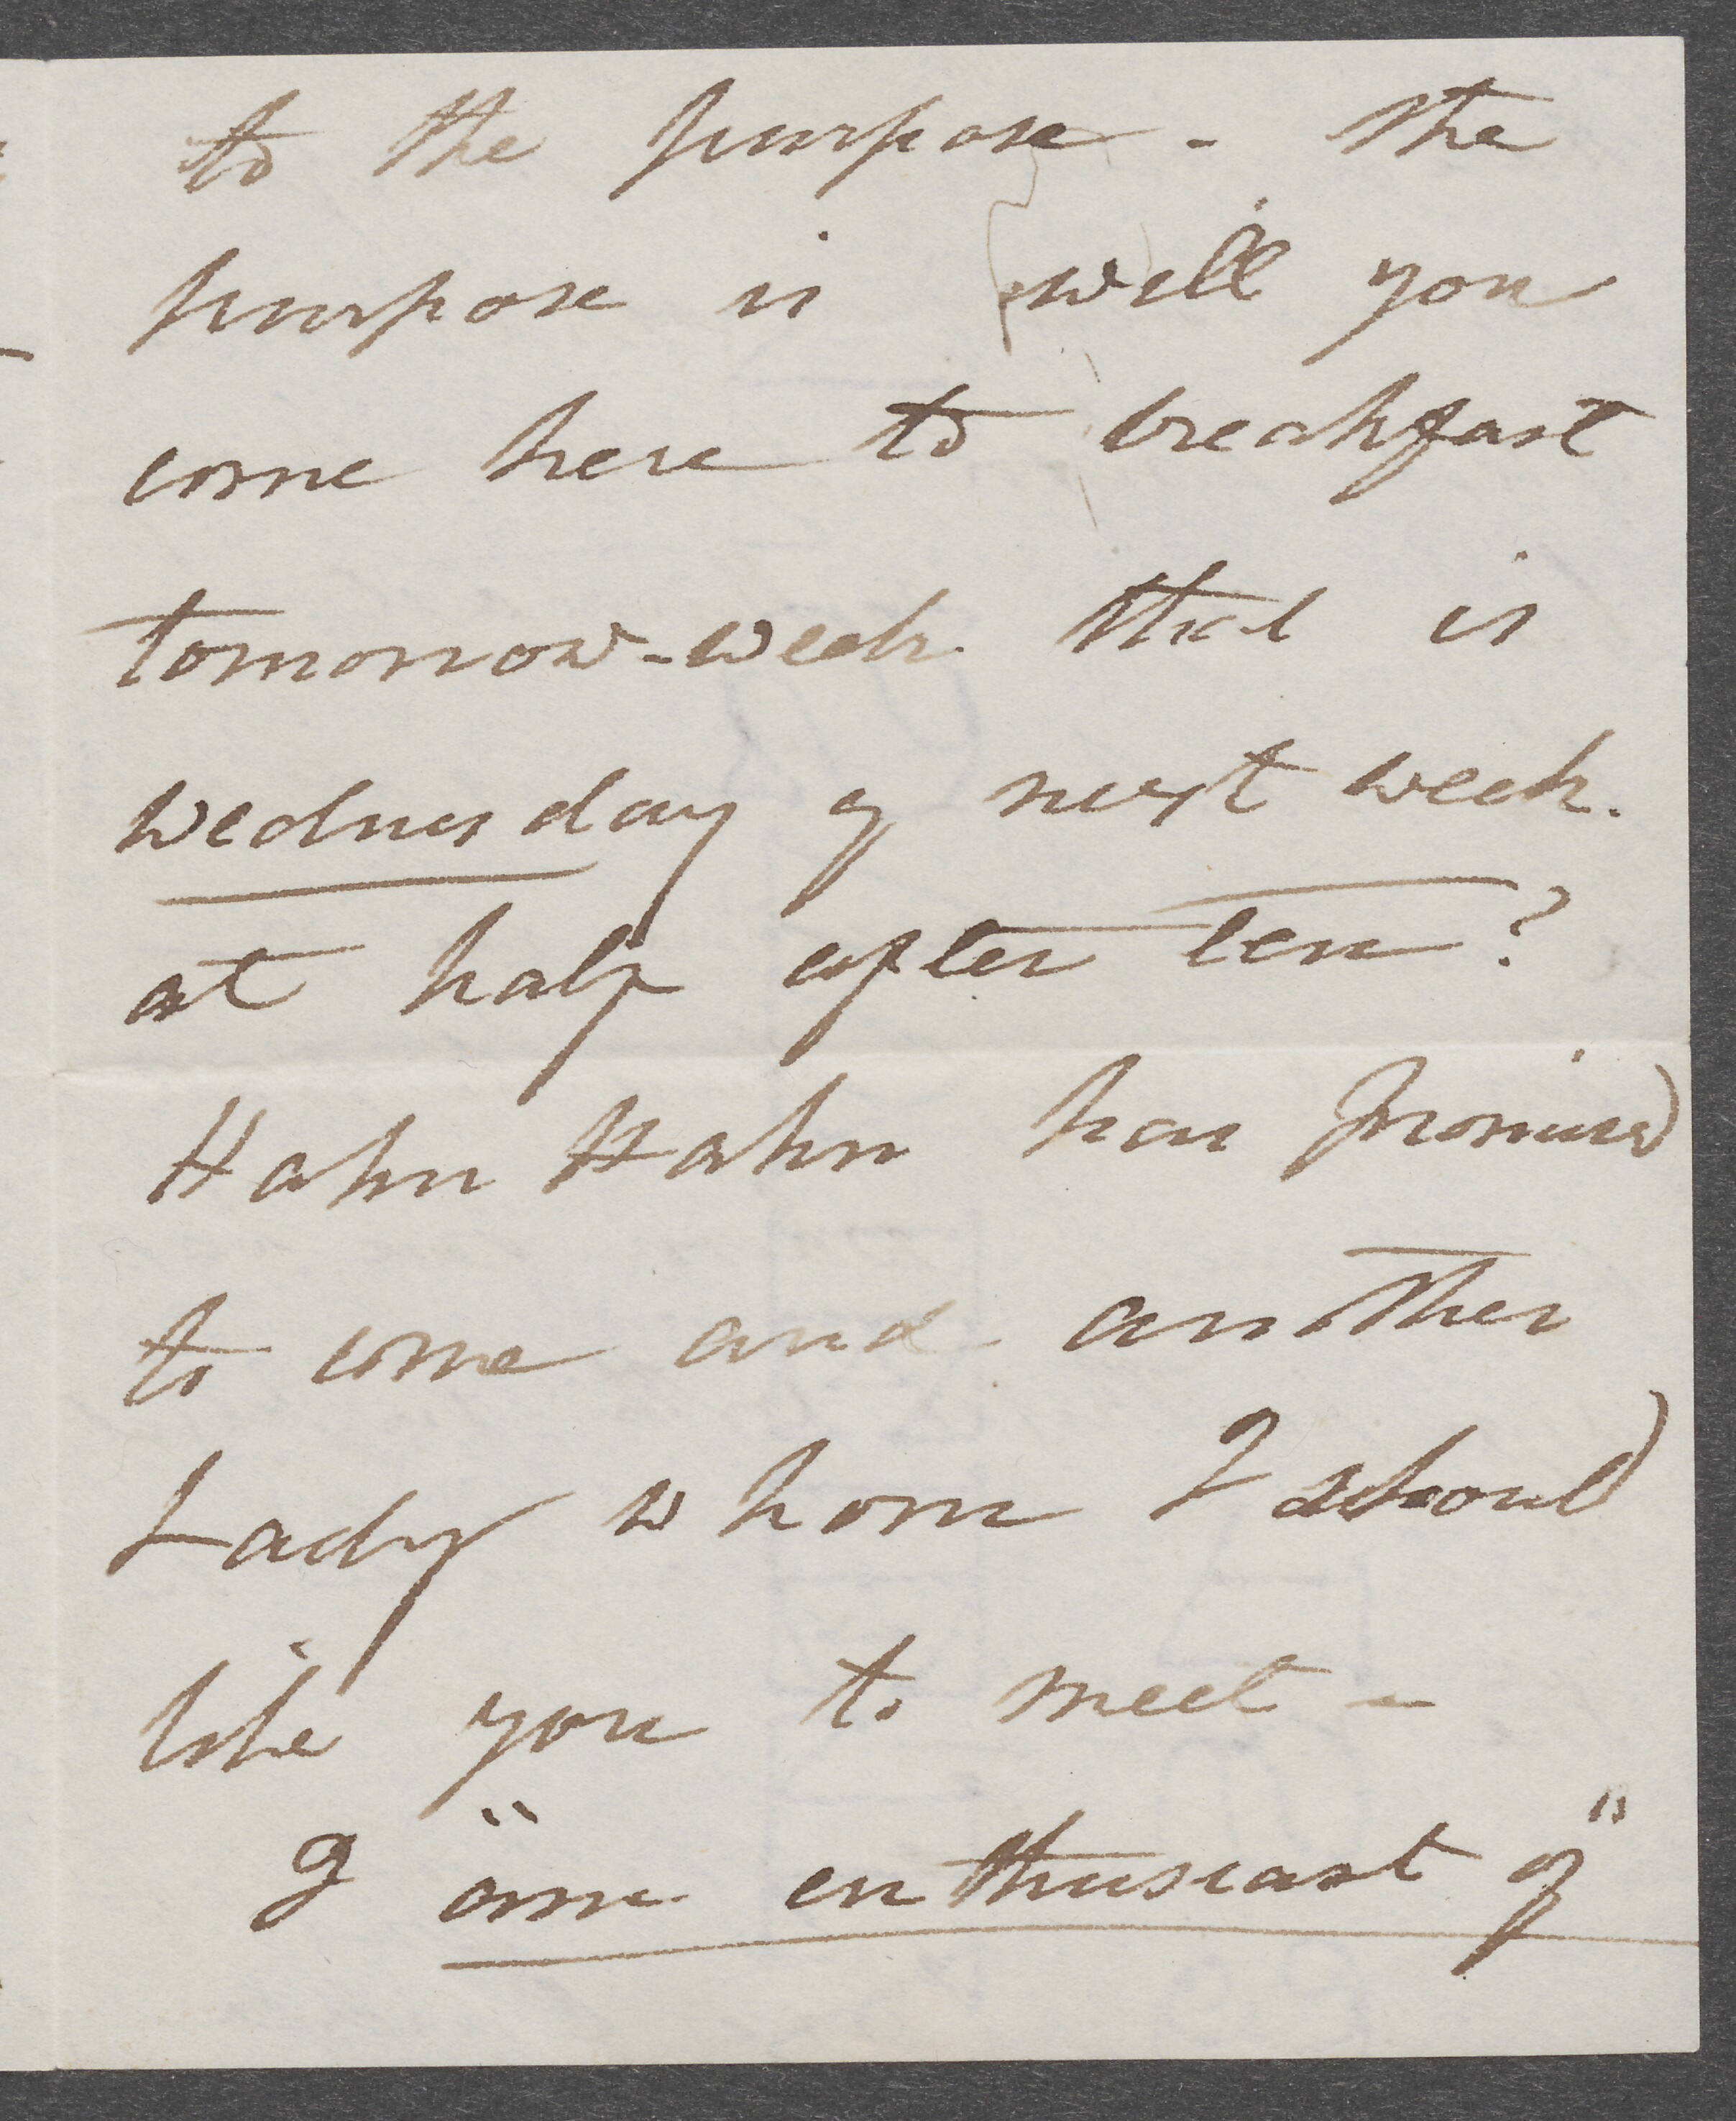 to the purpose - the
purpose is will you
come here to breakfast
tomorrow-week that is
Wednesday of next week.
at half after ten?
Hahn Hahn has promised
to come and another
Lady whom I should
like you to meet -
I "am enthusiast of"